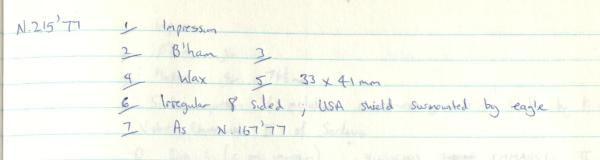 N.215'77 1 Impression
2 B'ham 3
4 Wax 5 33 x 41 mm
6 Irregular 8 sided, USA shield surmounted by eagle
7 As N.167'77